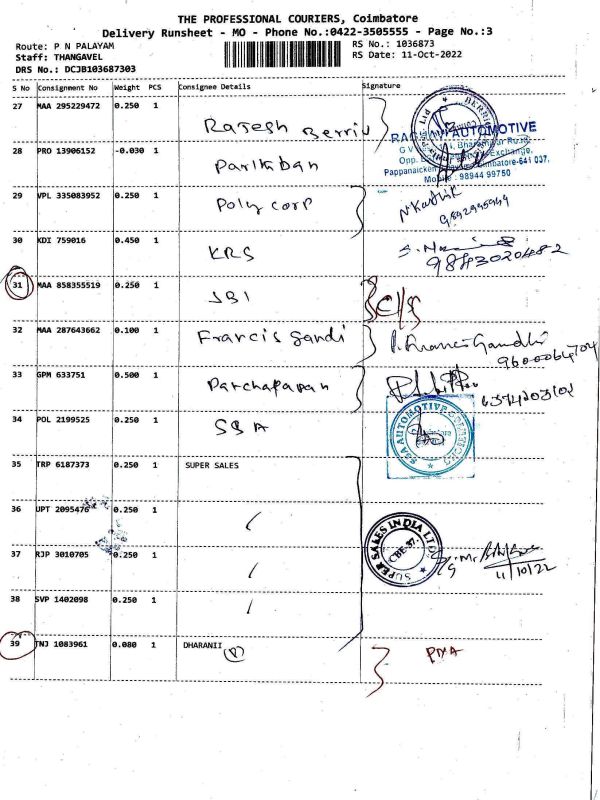 THE PROFESSIONAL COURIERS, Coimbatore
Delivery Runsheet - MO - Phone No.:0422-3505555 - Page No.:3
Route: P N PALAYAM
RS No.: 1036873
Staff: THANGAVEL
RS Date: 11-Oct-2022
DRS No.: DCJB103687303
S No Consignment No Weight PCS Consignee Details Signature
27 MAA 295229472 0.250 1
Rajesh Berriu
AUTOMOTIVE
28 PRO 13906152 -0.030 1 Parthban
Mobile : 98944 99750
29 VPL 335083952 0.250 1 Poly corp
N Karthik
30 KDI 759016 0.450 1 KRS
9843020482
31 MAA 858355519 0.250 1 JBI
32 MAA 287643662 0.100 1 Francis Gandi
P. Francis Gandhi
9600064704
33 GPM 633751 0.500 1
6374203102
34 POL 2199525 0.250 1 SSA
SSA AUTOMOTIVE
35 TRP 6187373 0.250 1 SUPER SALES
36 UPT 2095476 0.250 1
SUPER SALES INDIA LTD
CBE-37
37 RJP 3010705 0.250 1
11/10/22
38 SVP 1402098 0.250 1
39 TNJ 1083961 0.080 1 DHARANII